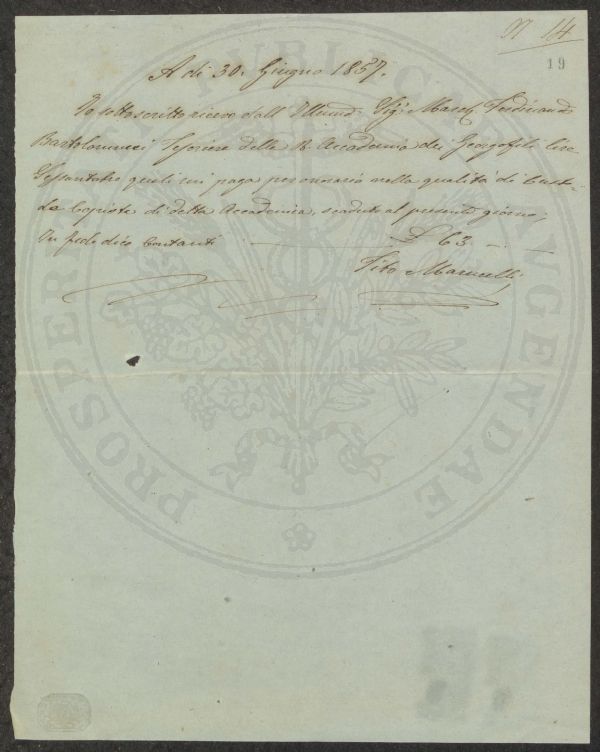 N 14
19
A dì 30. Giugno 1857.
Io sottoscritto ricevo dall' Illmo Sig: March. Ferdinando
Bartolommei Tesoriere della R. Accademia dei Georgofili Lire
Sessantatre quali mi paga per onorario nella qualità di Custo-
de Copista di detta Accademia, scaduto al presente giorno;
In fede dico Contanti £ 63 - . -
Tito Marucelli
PROSPERITATI PUBLICAE AUGENDAE